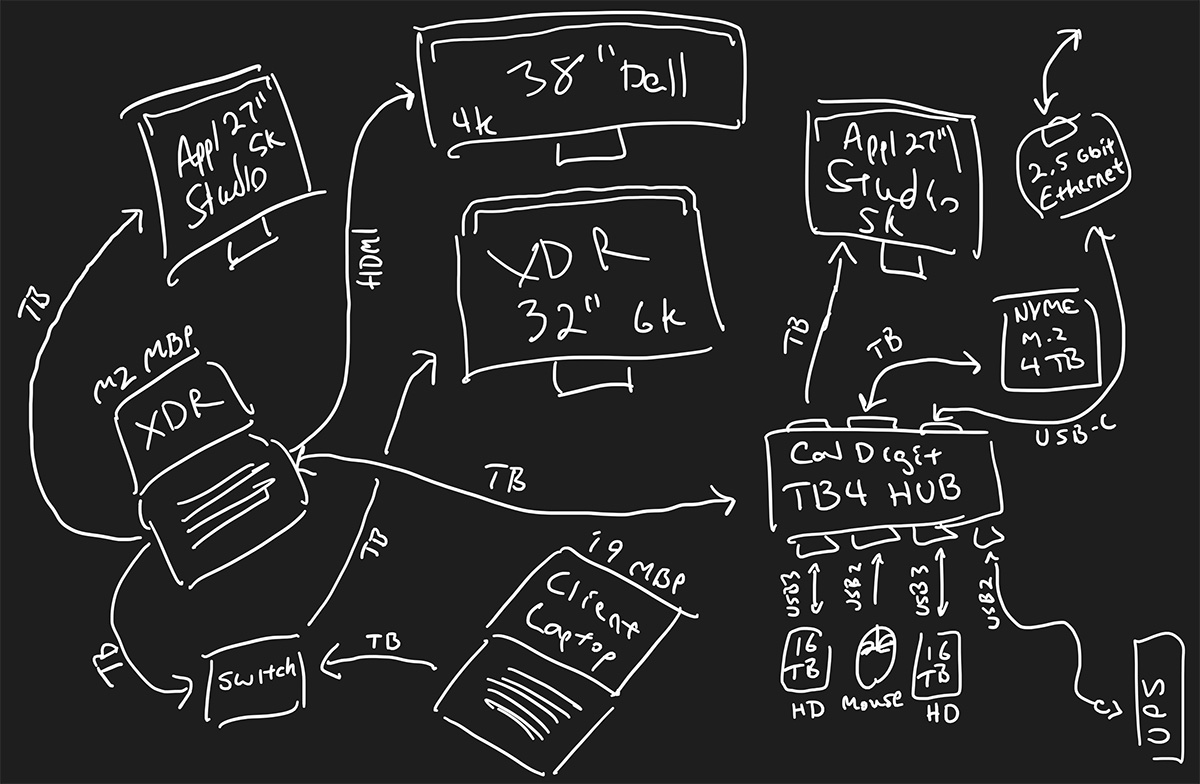 38" Dell
4k
Appl 27"
5k
Studio
Appl 27"
Studio
5k
2.5 Gbit
Ethernet
HDMI
XDR
32" 6k
TB
TB
TB
NVME
M.2
4TB
M2 MBP
XDR
USB-C
CalDigit
TB4 HUB
TB
TB
i9 MBP
Client
Laptop
USB3
USB2
USB3
USB2
TB
TB
Switch
16
TB
HD
Mouse
16
TB
HD
UPS